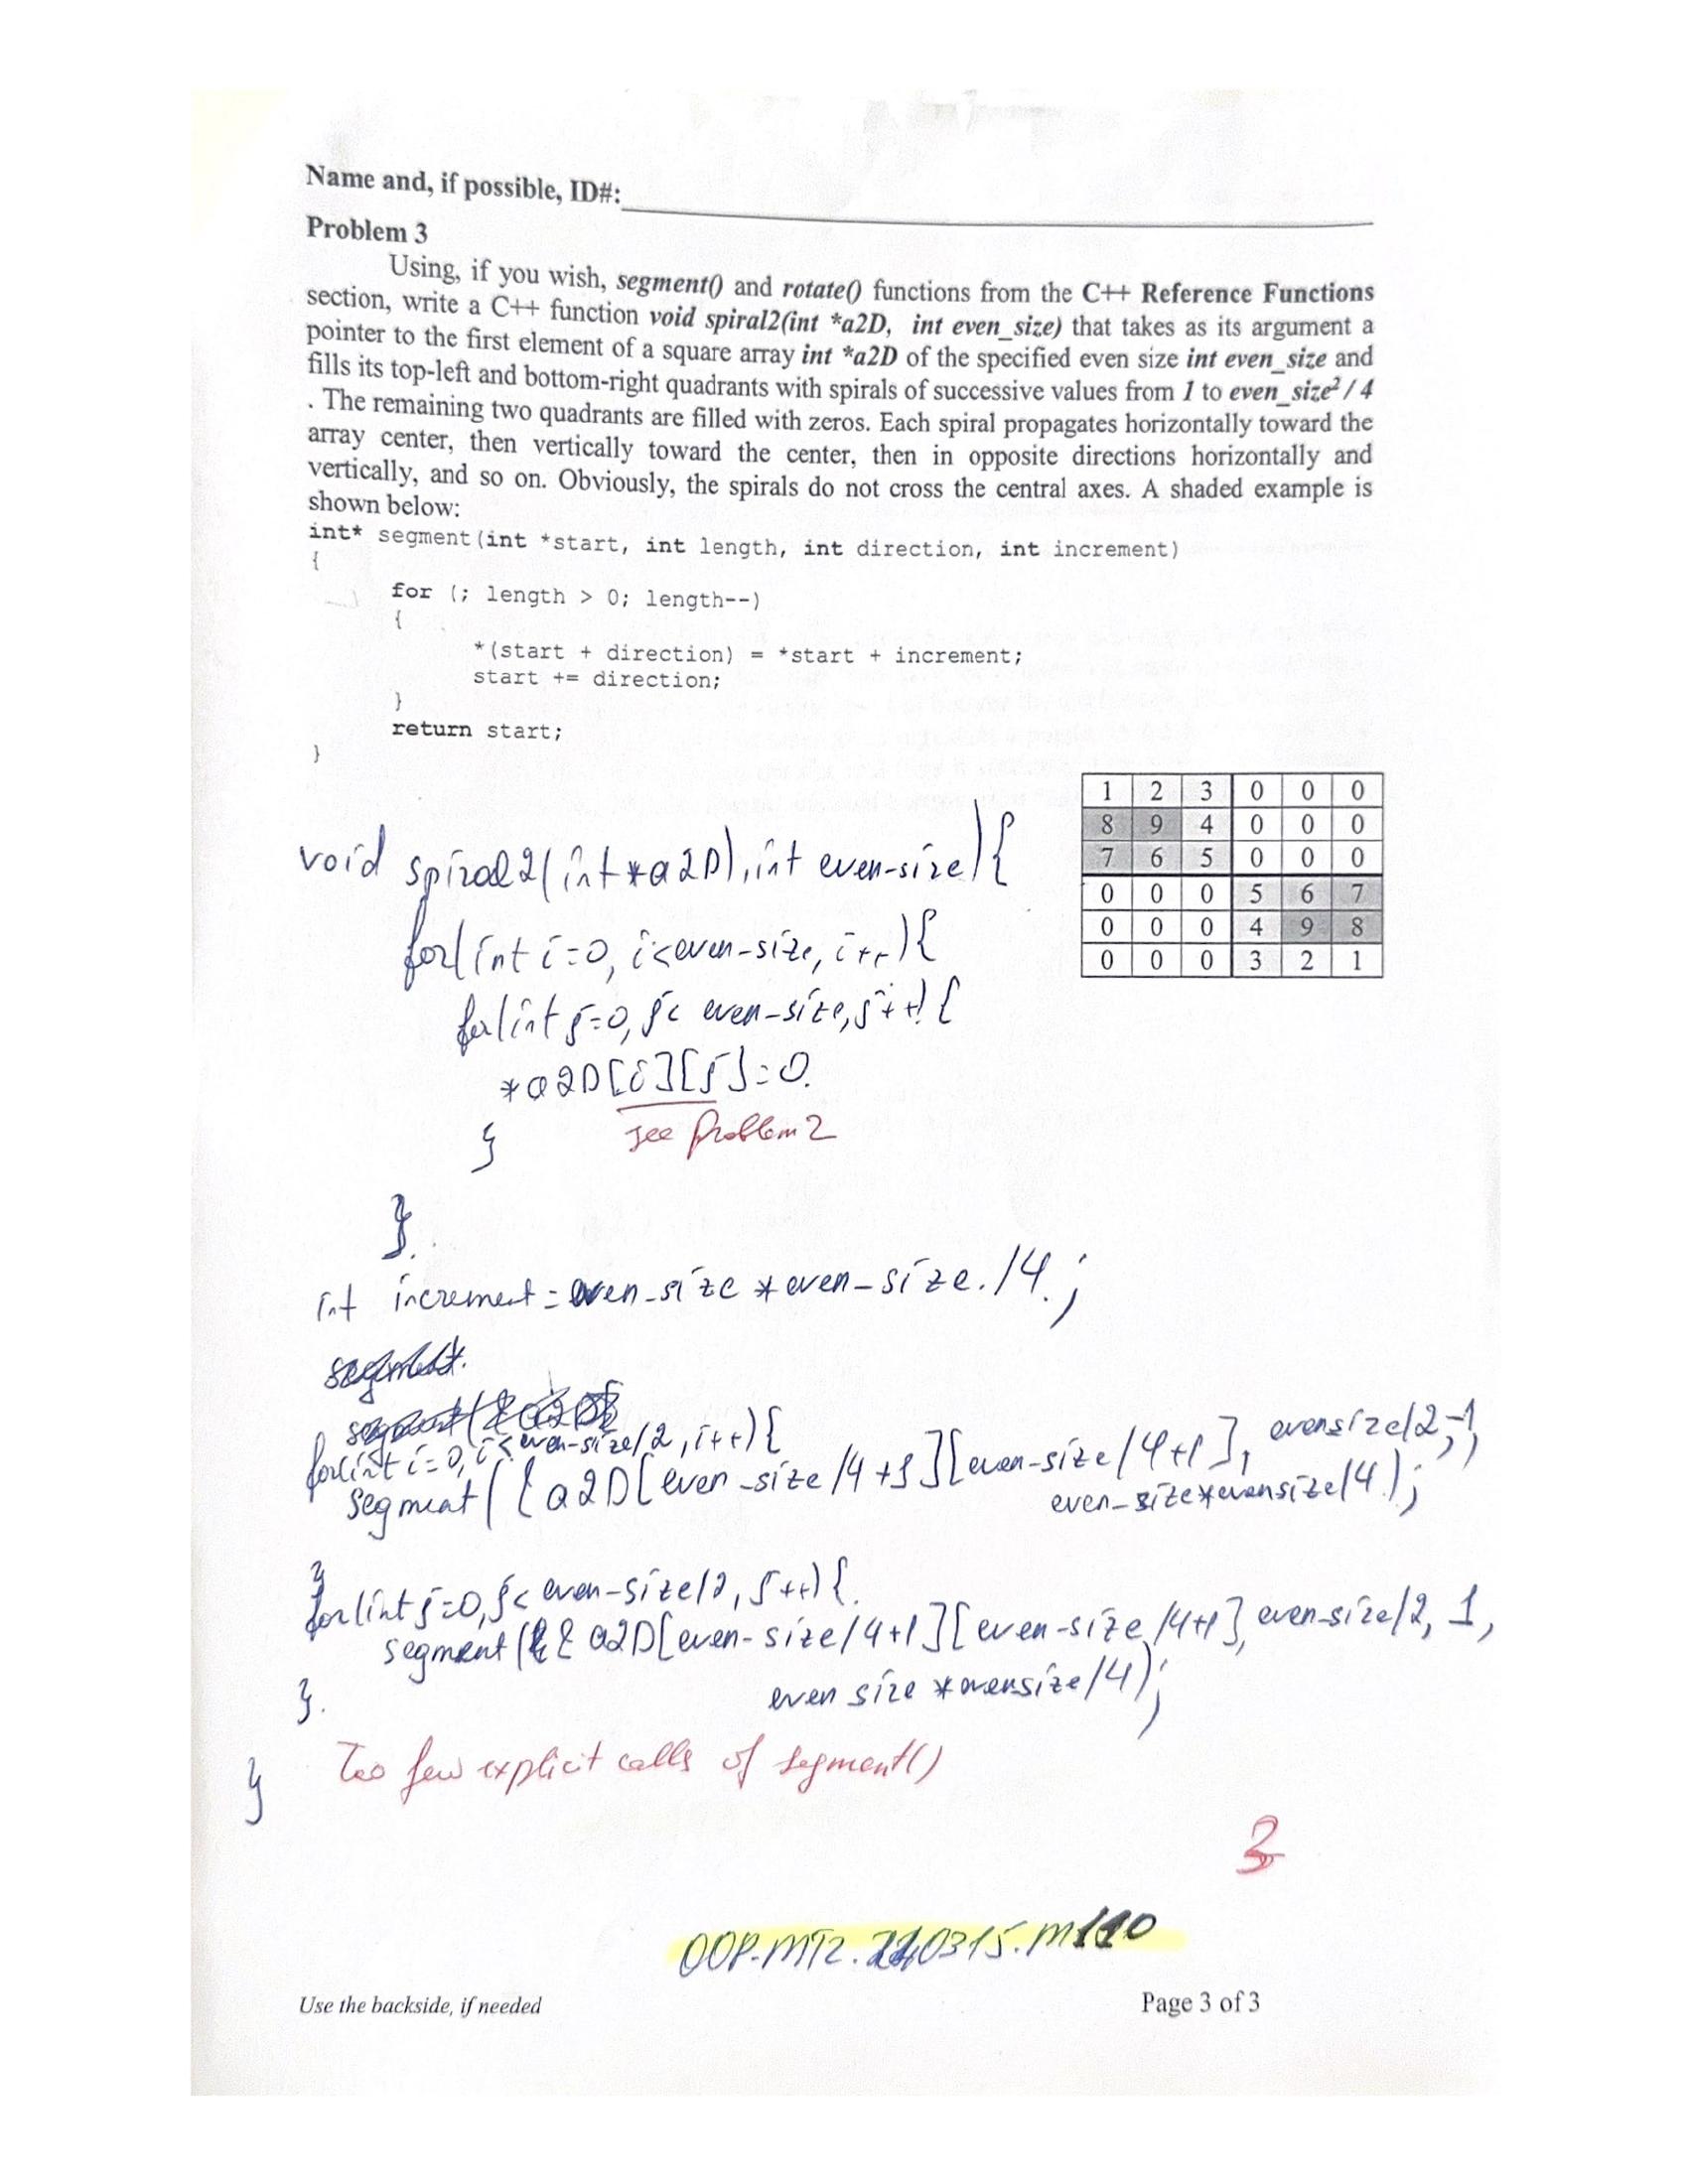 Name and, if possible, ID#:
Problem 3
Using, if you wish, segment() and rotate() functions from the C++ Reference Functions
section, write a C++ function void spiral2(int *a2D, int even_size) that takes as its argument a
pointer to the first element of a square array int *a2D of the specified even size int even_size and
fills its top-left and bottom-right quadrants with spirals of successive values from 1 to even_size² / 4
. The remaining two quadrants are filled with zeros. Each spiral propagates horizontally toward the
array center, then vertically toward the center, then in opposite directions horizontally and
vertically, and so on. Obviously, the spirals do not cross the central axes. A shaded example is
shown below:
int* segment(int *start, int length, int direction, int increment)
{
for (; length > 0; length--)
{
*(start + direction) = *start + increment;
start += direction;
}
return start;
}
1 2 3 0 0 0
8 9 4 0 0 0
7 6 5 0 0 0
0 0 0 5 6 7
0 0 0 4 9 8
0 0 0 3 2 1
void spiral2(int*a2D),int even-size){
for(int i=0, i<even-size, i++){
for(int j=0, j< even-size, j++){
*a2D[i][j]=0.
see Problem 2
}
}.
int increment = even_size * even-size./4.;
for(int i=0, i<even-size/2, i++){
segment(&a2D[even-size/4+1][even-size/4+1], evensize/2,-1,
even_size*evensize/4.);
}
for(int j=0, j< even-size/2, j++){.
segment(& a2D[even-size/4+1][even-size/4+1], even-size/2, 1,
even size *evensize/4);
}.
Too few explicit calls of segment()
}
OOP-MT2.
Use the backside, if needed
Page 3 of 3